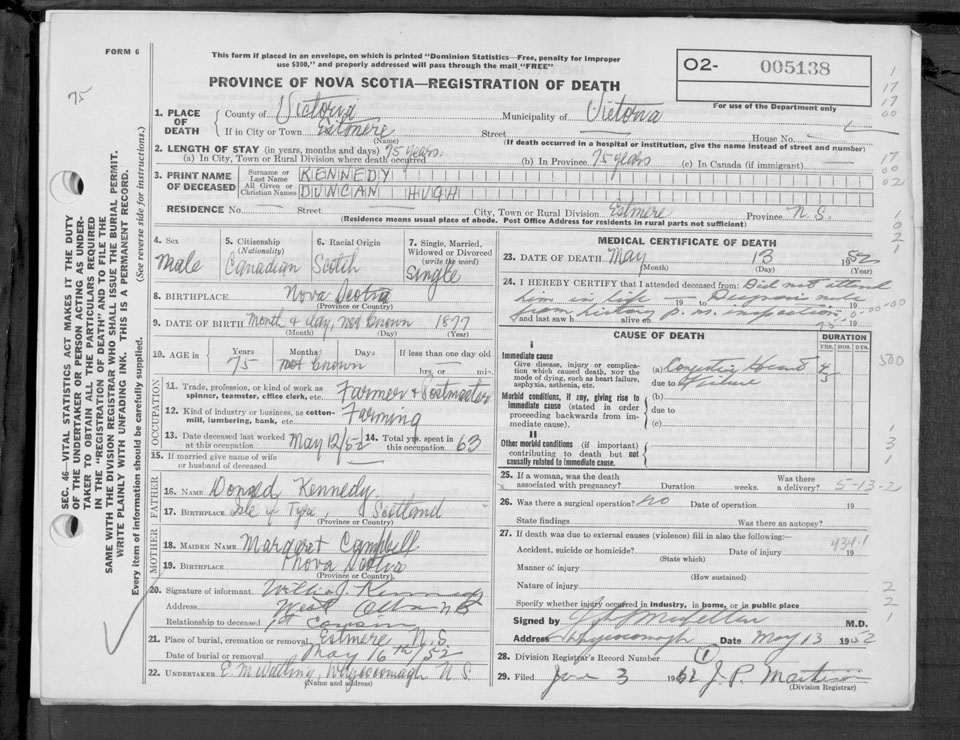 FORM 6
This form if placed in an envelope, on which is printed "Dominion Statistics—Free, penalty for improper
use $300," and properly addressed will pass through the mail "FREE"
PROVINCE OF NOVA SCOTIA—REGISTRATION OF DEATH
O2- 005138
For use of the Department only
75
SEC. 46—VITAL STATISTICS ACT MAKES IT THE DUTY
OF THE UNDERTAKER OR PERSON ACTING AS UNDER-
TAKER TO OBTAIN ALL THE PARTICULARS REQUIRED
IN THE "REGISTRATION OF DEATH" AND TO FILE THE
SAME WITH THE DIVISION REGISTRAR WHO SHALL ISSUE THE BURIAL PERMIT.
WRITE PLAINLY WITH UNFADING INK. THIS IS A PERMANENT RECORD.
Every item of information should be carefully supplied. (See reverse side for instructions.)
1. PLACE OF DEATH
County of Victoria Municipality of Victoria
If in City or Town Estmere Street House No.
(Name) (If death occurred in a hospital or institution, give the name instead of street and number)
2. LENGTH OF STAY (in years, months and days)
(a) In City, Town or Rural Division where death occurred 75 years. (b) In Province 75 years (c) In Canada (if immigrant)
3. PRINT NAME OF DECEASED
Surname or Last Name KENNEDY
All Given or Christian Names DUNCAN HUGH
RESIDENCE No. Street City, Town or Rural Division Estmere Province N.S.
(Residence means usual place of abode. Post Office Address for residents in rural parts not sufficient)
4. Sex Male
5. Citizenship (Nationality) Canadian
6. Racial Origin Scotch
7. Single, Married, Widowed or Divorced (write the word) Single
8. BIRTHPLACE Nova Scotia
(Province or Country)
9. DATE OF BIRTH Month & day, not known 1877
(Month) (Day) (Year)
10. AGE in Years 75 Months not known Days If less than one day old hrs. or min.
OCCUPATION
11. Trade, profession, or kind of work as spinner, teamster, office clerk, etc. Farmer & Postmaster
12. Kind of industry or business, as cotton-mill, lumbering, bank, etc. Farming
13. Date deceased last worked at this occupation May 12/52 14. Total yrs. spent in this occupation 63
15. If married give name of wife or husband of deceased
FATHER
16. NAME Donald Kennedy
17. BIRTHPLACE Isle of Tyre, Scotland
(Province or Country)
MOTHER
18. MAIDEN NAME Margaret Campbell
19. BIRTHPLACE Nova Scotia
(Province or Country)
20. Signature of informant Kennedy
Address West
Relationship to deceased 1st Cousin
21. Place of burial, cremation or removal Estmere N.S.
Date of burial or removal May 16th/52
22. UNDERTAKER E. M. Watling, Whycocomagh N.S.
(Name and address)
MEDICAL CERTIFICATE OF DEATH
23. DATE OF DEATH May 13 1952
(Month) (Day) (Year)
24. I HEREBY CERTIFY that I attended deceased from: Did not attend
him in life 19 to Diagnosis made
from history p.m. inspection
and last saw h alive on 19
CAUSE OF DEATH
DURATION
YRS. MOS. DYS.
I
Immediate cause
Give disease, injury or complication which caused death, not the mode of dying, such as heart failure, asphyxia, asthenia, etc.
(a) Congestive Heart
due to Failure
Morbid conditions, if any, giving rise to immediate cause (stated in order proceeding backwards from immediate cause).
(b)
due to
(c)
II
Other morbid conditions (if important) contributing to death but not causally related to immediate cause.
25. If a woman, was the death associated with pregnancy? Duration weeks. Was there a delivery? 5-13-2
26. Was there a surgical operation? No Date of operation 19
State findings Was there an autopsy?
27. If death was due to external causes (violence) fill in also the following:—
434.1
Accident, suicide or homicide? Date of injury 19
(State which)
Manner of injury
(How sustained)
Nature of injury
Specify whether injury occurred in industry, in home, or in public place
Signed by M.D.
Address Whycocomagh Date May 13 1952
28. Division Registrar's Record Number 1
29. Filed June 3 1952 J. P.
(Division Registrar)
1
17
17
00
17
00
02
500
1
3
1
2
2
1